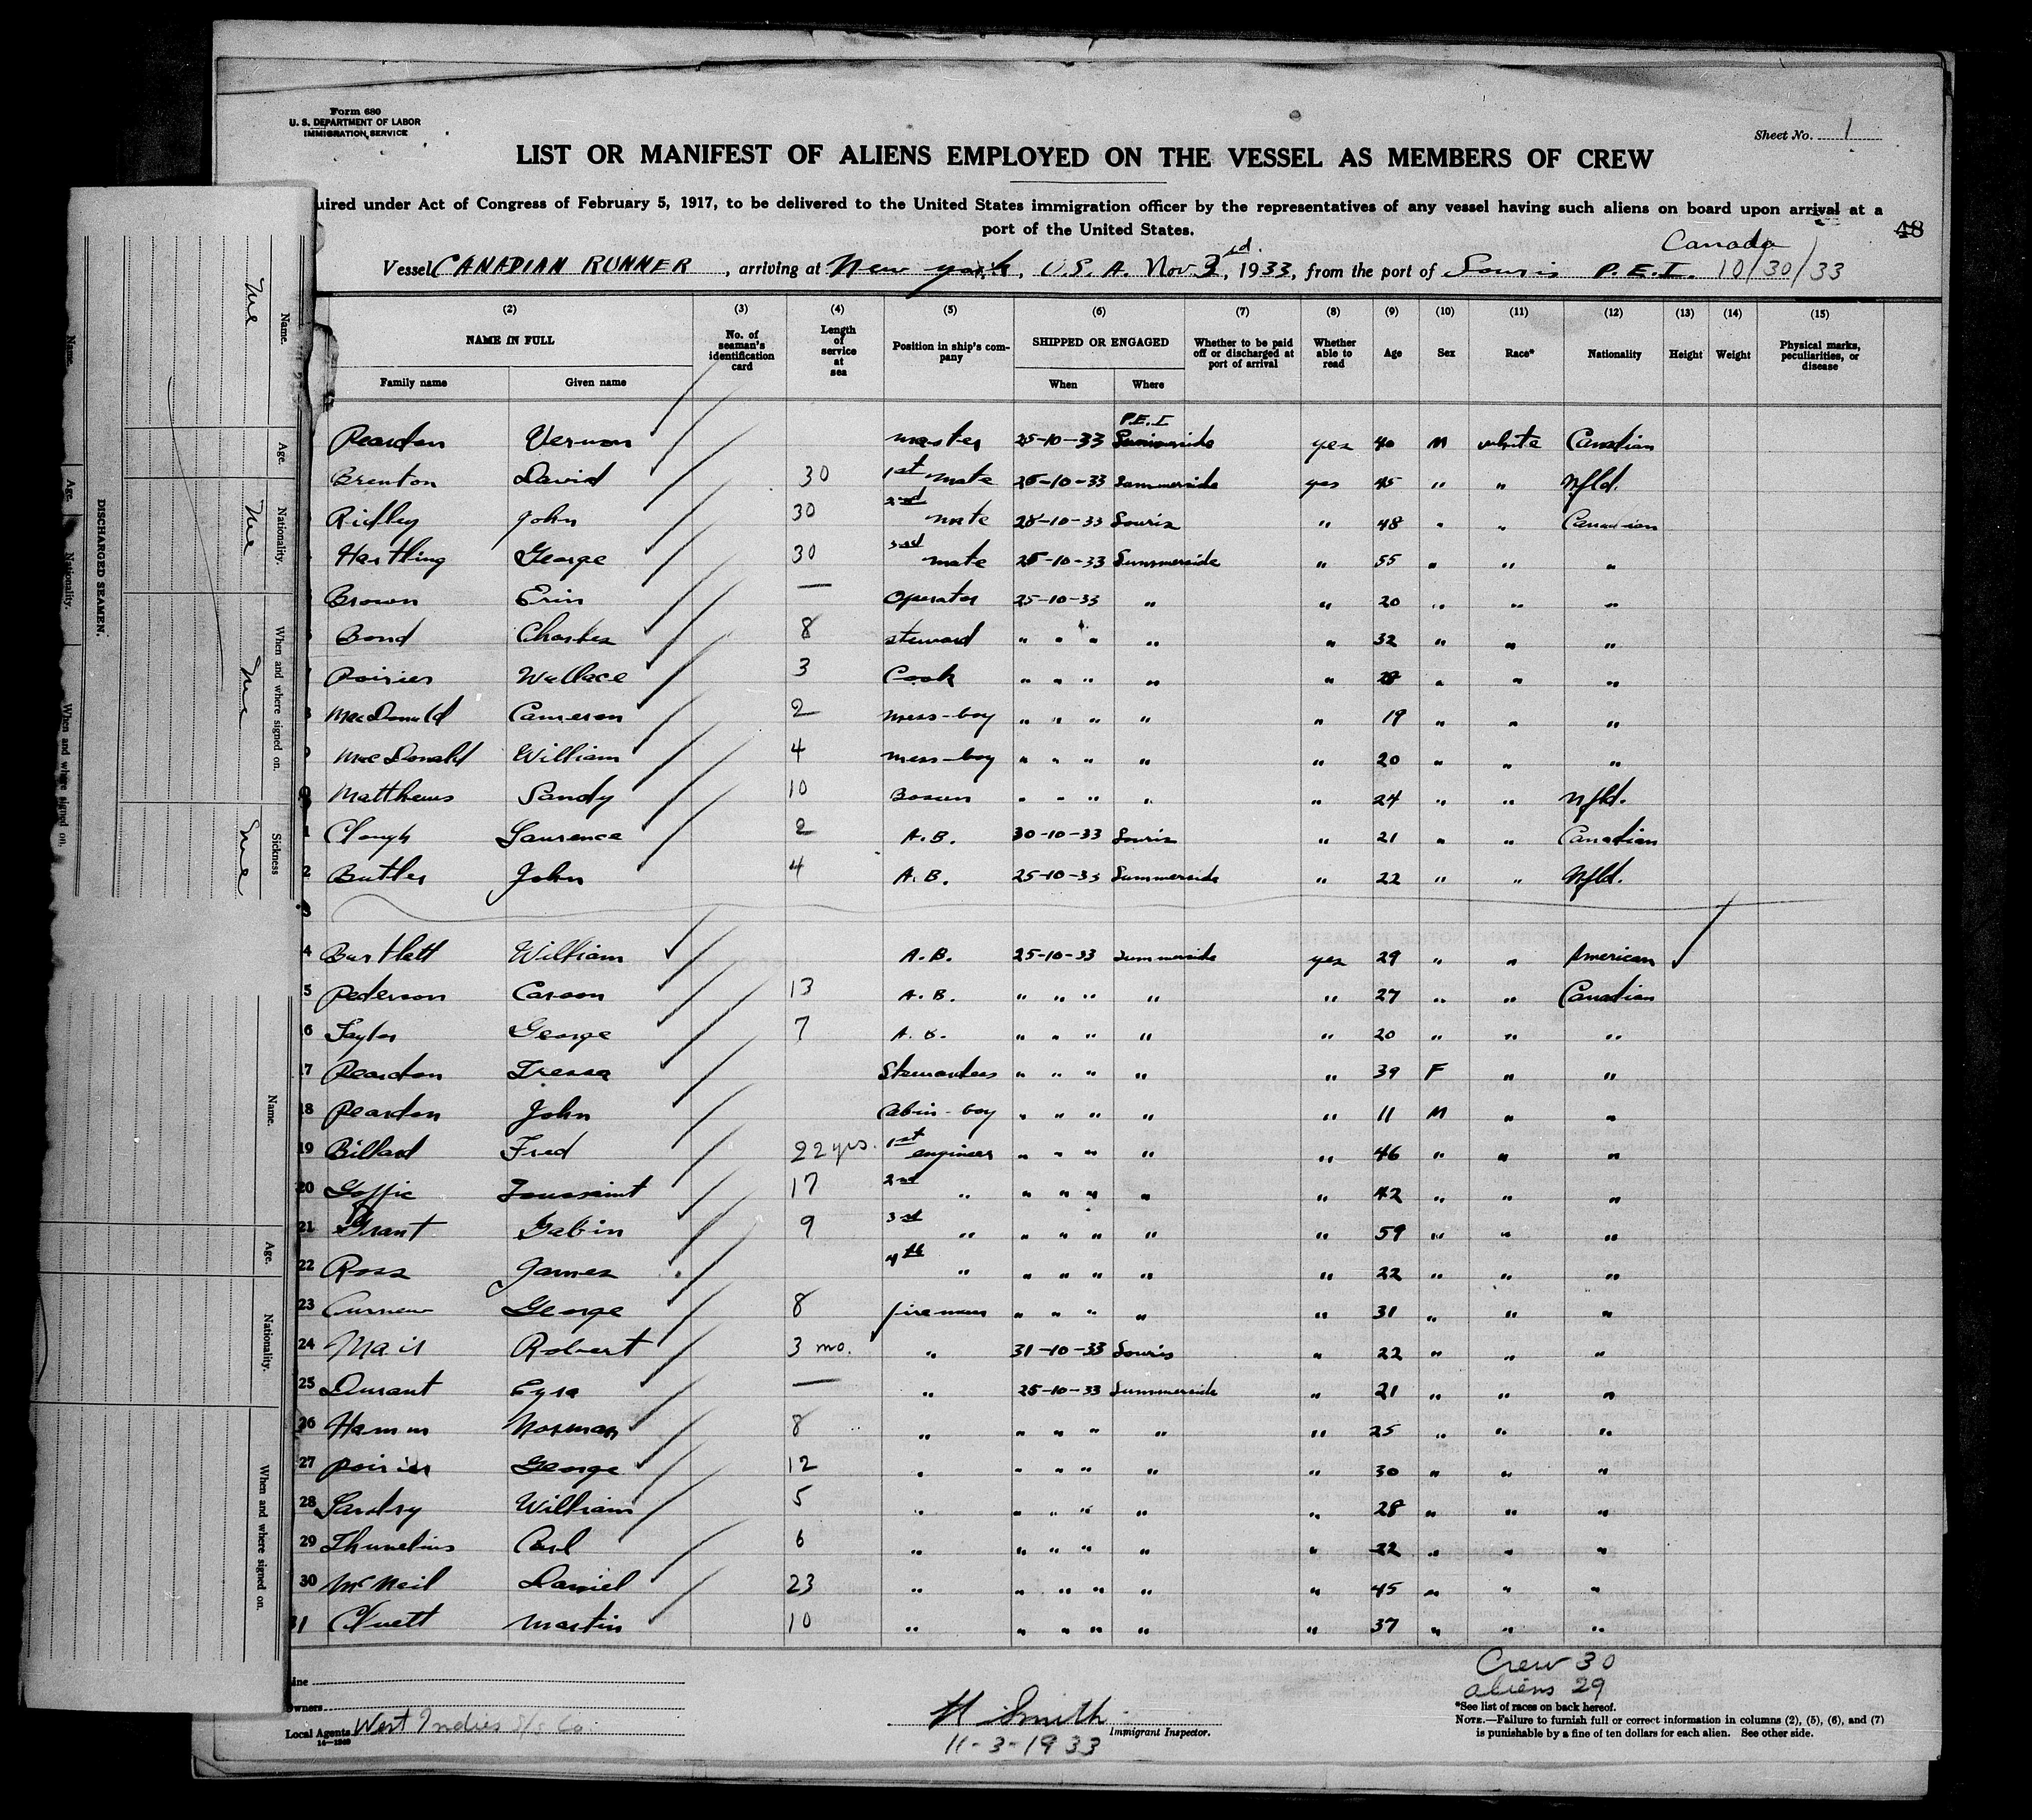 Form 680
U. S. DEPARTMENT OF LABOR
IMMIGRATION SERVICE
Sheet No. 1
LIST OR MANIFEST OF ALIENS EMPLOYED ON THE VESSEL AS MEMBERS OF CREW
uired under Act of Congress of February 5, 1917, to be delivered to the United States immigration officer by the representatives of any vessel having such aliens on board upon arrival at a
port of the United States.
48
Canada
Vessel CANADIAN RUNNER, arriving at New York, U.S.A. Nov 3rd, 1933, from the port of Souris P.E.I. 10/30/33
(2) (3) (4) (5) (6) (7) (8) (9) (10) (11) (12) (13) (14) (15)
NAME IN FULL No. of seaman's identification card Length of service at sea Position in ship's company SHIPPED OR ENGAGED Whether to be paid off or discharged at port of arrival Whether able to read Age Sex Race* Nationality Height Weight Physical marks, peculiarities, or disease
Family name Given name When Where
P.E.I
Reardon Vernon master 25-10-33 Summerside yes 40 M white Canadian
Brenton David 30 1st mate 25-10-33 Summerside yes 45 " " Nfld.
Ridley John 30 2nd mate 28-10-33 Souris " 48 " " Canadian
Hartling George 30 3rd mate 25-10-33 Summerside " 55 " " "
Brown Erin — Operator 25-10-33 " " 20 " " "
Bond Charles 8 steward " " " " " 32 " " "
Poirier Wallace 3 Cook " " " " " 28 " " "
MacDonald Cameron 2 mess-boy " " " " " 19 " " "
MacDonald William 4 mess-boy " " " " " 20 " " "
Matthews Sandy 10 Bosun " " " " " 24 " " Nfld.
1 Clough Laurence 2 A.B. 30-10-33 Souris " 21 " " Canadian
2 Butler John 4 A.B. 25-10-33 Summerside " 22 " " Nfld.
3
4 Bartlett William A.B. 25-10-33 Summerside yes 29 " " American
5 Pederson Carson 13 A.B. " " " " " 27 " " Canadian
6 Taylor George 7 A.B. " " " " " 20 " " "
17 Reardon Tressa Stewardess " " " " " 39 F " "
18 Reardon John Cabin-boy " " " " " 11 M " "
19 Billard Fred 22 yrs. 1st engineer " " " " " 46 " " "
20 Goffic Toussaint 17 2nd " " " " " " 42 " " "
21 Grant Gabin 9 3rd " " " " " " 59 " " "
22 Ross James 4th " " " " " " 22 " " "
23 Curnew George 8 fireman " " " " " 31 " " "
24 Mair Robert 3 mo. " 31-10-33 Souris " 22 " " "
25 Durant Ezra — " 25-10-33 Summerside " 21 " " "
26 Hamm Norman 8 " " " " " " 25 " " "
27 Poirier George 12 " " " " " " 30 " " "
28 Landry William 5 " " " " " " 28 " " "
29 Thunelius Carl 6 " " " " " " 22 " " "
30 McNeil Daniel 23 " " " " " " 45 " " "
31 Cluett Martin 10 " " " " " " 37 " " "
Crew 30
aliens 29
ine
Owners
Local Agents West Indies S/S Co
14—1240
H Smith
Immigrant Inspector.
11-3-1933
*See list of races on back hereof.
NOTE.—Failure to furnish full or correct information in columns (2), (5), (6), and (7)
is punishable by a fine of ten dollars for each alien. See other side.
DISCHARGED SEAMEN.
Name. Age. Nationality. When and where signed on.
Name. Age. Nationality. When and where signed on. Sickness
Name. Age. Nationality. When and where signed on.